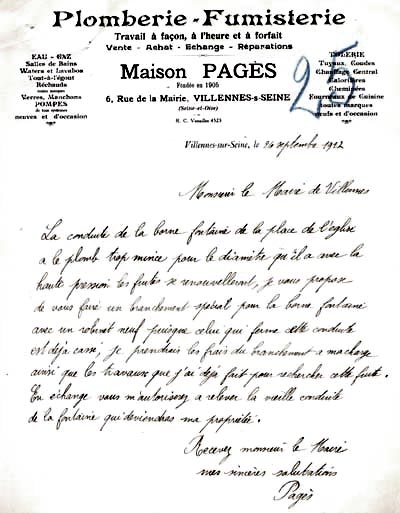 Plomberie - Fumisterie
Travail à façon, à l'heure et à forfait
Vente - Achat - Echange - Réparations
EAU - GAZ
Salles de Bains
Waters et Lavabos
Tout-à-l'égout
Réchauds
Verres, Manchons
POMPES
de tous systèmes
neuves et d'occasion
Maison PAGÈS
Fondée en 1906
6, Rue de la Mairie, VILLENNES-s-SEINE
(Seine-et-Oise)
R. C. Versailles 4523
TOLERIE
Tuyaux, Coudes
Chauffage Central
Calorifères
Cheminées
Fourneaux de Cuisine
toutes marques
neufs et d'occasion
25
Villennes-sur-Seine, le 26 septembre 1932
Monsieur le Maire de Villennes
La conduite de la borne fontaine de la place de l'eglise
a le plomb trop mince pour le diamètre qu'il a avec la
haute pression les fuites se renouvelleront, je vous propose
de vous faire un branchement spécial pour la borne fontaine
avec un robinet neuf puisque celui qui ferme cette conduite
est déja cassé, je prendrais les frais du branchement a ma charge
ainsi que les travaux que j'ai déja fait pour rechercher cette fuite.
En échange vous m'autoriserez a relever la vieille conduite
de la fontaine qui deviendras ma propriété.
Recevez monsieur le Maire
mes sincères salutations
Pagès